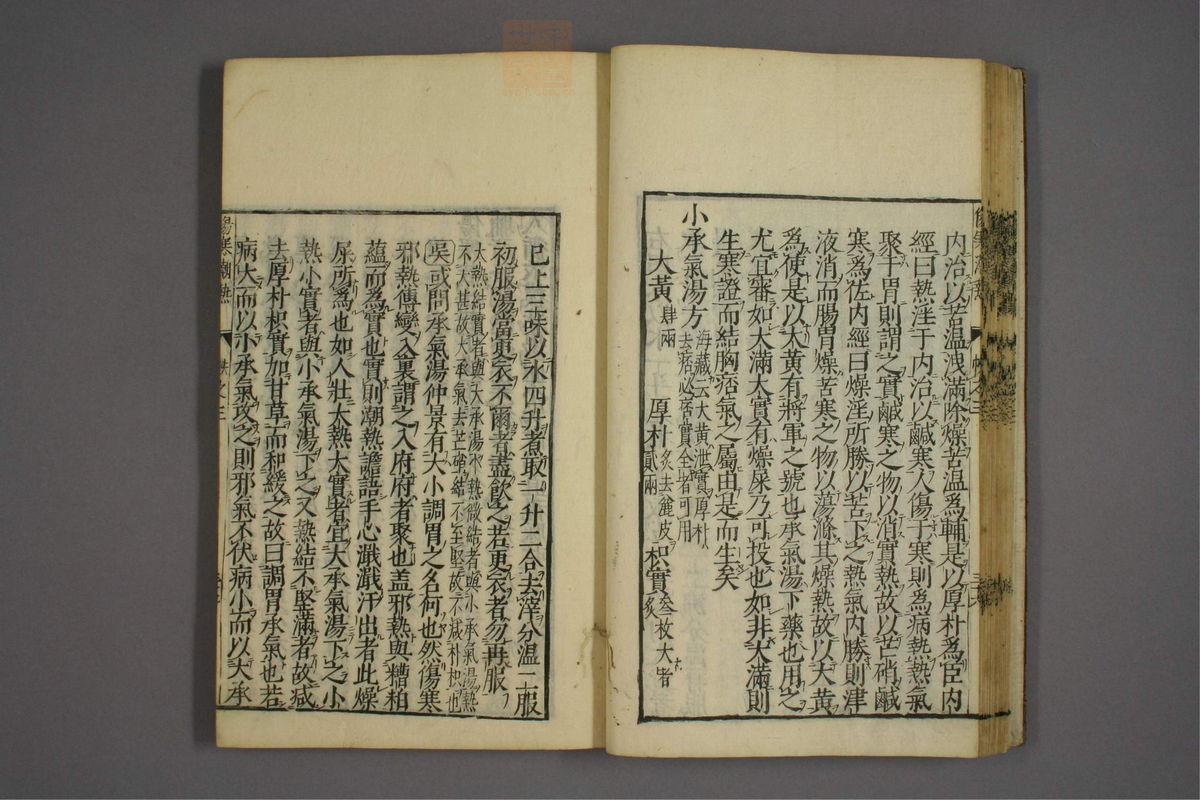 内治以苦温洩滿除燥苦温爲輔是以厚朴爲臣内
經曰熱淫于内治以鹹寒人傷于寒則爲病熱熱氣
聚于胃則謂之實鹹寒之物以消實熱故以芒硝鹹
寒爲佐内經曰燥淫所勝以苦下之熱氣内勝則津
液消而腸胃燥苦寒之物以蕩滌其燥熱故以大黄
爲使是以大黄有將軍之號也承氣湯下藥也用之
尤宜審如大滿大實有燥屎乃可投也如非大滿則
生寒證而結胸痞氣之屬由是而生矣
小承氣湯方
海藏云大黄泄實厚朴
去痞必痞實全者可用
大黄肆兩 厚朴貳兩炙去麄皮 枳實叁枚大者炙
已上三味以水四升煮取一升二合去滓分温二服
初服湯當更衣不爾者盡飲之若更衣者勿再服
大熱結實者與大承湯水熱微結者與小承氣湯熱
不大甚故大承氣去芒硝結不至堅故不减朴枳也
吳或問承氣湯仲景有大小調胃之名何也然傷寒
邪熱傳變入裏謂之入府府者聚也盖邪熱與糟粕
蘊而爲實也實則潮熱譫語手心濈濈汗出者此燥
屎所爲也如人壯大熱大實者宜大承氣湯下之小
熱小實者與小承氣湯下之又熱結不堅滿者故减
去厚朴枳實加甘草而和緩之故曰調胃承氣也若
病大而以小承氣攻之則邪氣不伏病小而以大承
傷寒潮熱